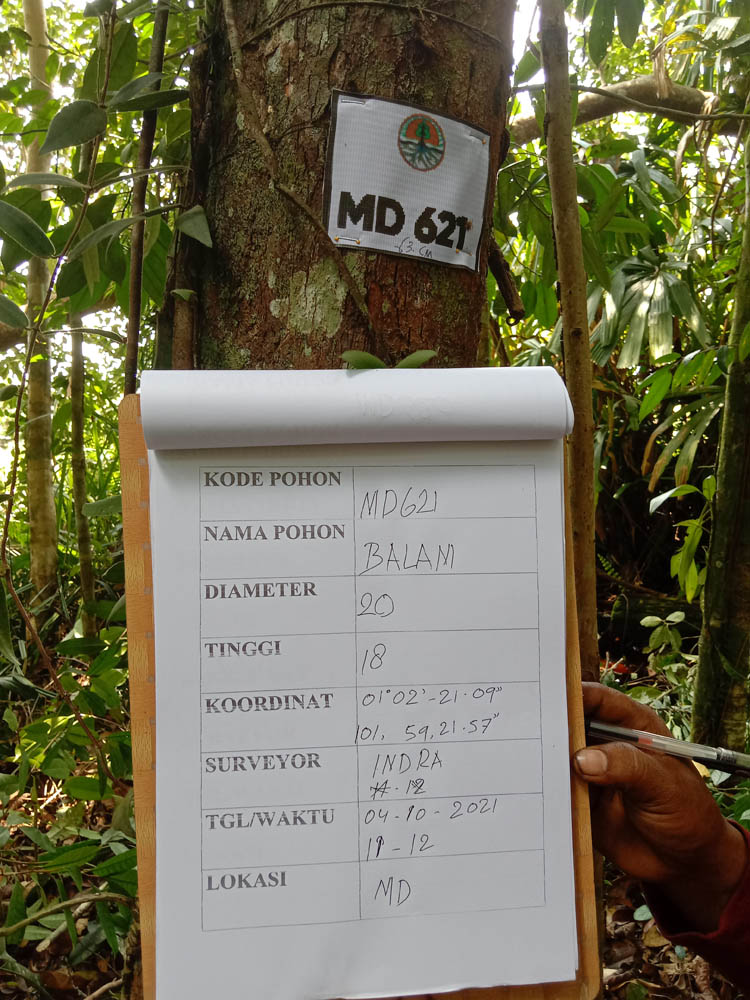 MD 621
63 CM
KODE POHON MD621
NAMA POHON BALAM
DIAMETER 20
TINGGI 18
KOORDINAT 01°02'-21.09"
101, 59,21.57"
SURVEYOR INDRA
TGL/WAKTU 04-10-2021
11-12
LOKASI MD